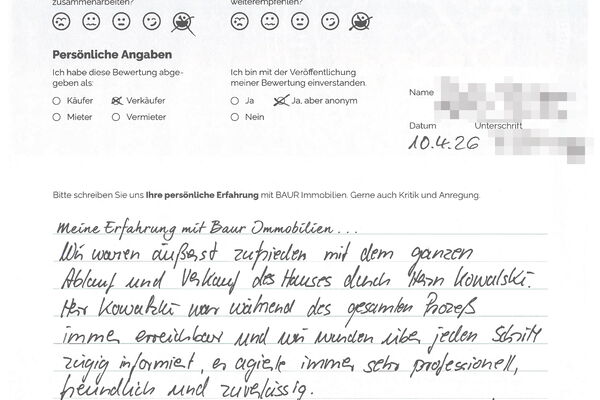 zusammenarbeiten? weiterempfehlen?
Persönliche Angaben
Ich habe diese Bewertung abge-
geben als:
Käufer Verkäufer
Mieter Vermieter
Ich bin mit der Veröffentlichung
meiner Bewertung einverstanden.
Ja Ja, aber anonym
Nein
Name
Datum Unterschrift
10.4.26
Bitte schreiben Sie uns Ihre persönliche Erfahrung mit BAUR Immobilien. Gerne auch Kritik und Anregung.
Meine Erfahrung mit Baur Immobilien...
Wir waren äußerst zufrieden mit dem ganzen
Ablauf und Verkauf des Hauses durch Herrn Kowalski.
Herr Kowalski war während des gesamten Prozeß
immer erreichbar und wir wurden über jeden Schritt
zügig informiert, er agierte immer sehr professionell,
freundlich und zuverlässig.